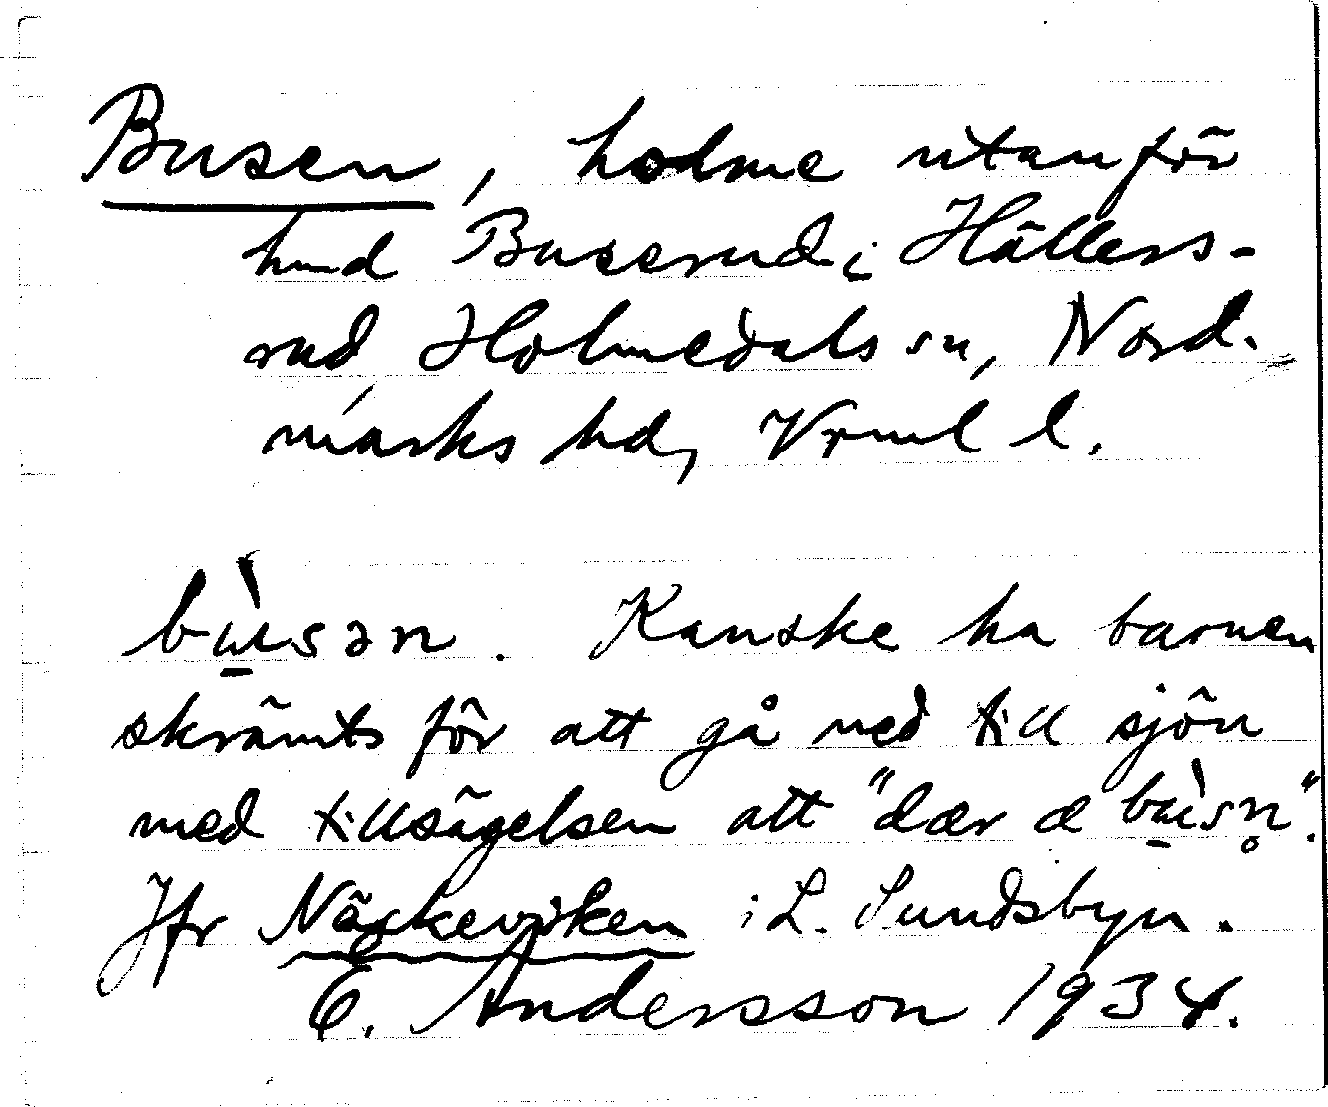 Busen, holme utanför
hmd Buserud i Hällers-
rud, Holmedals sn, Nord-
marks hd, Vrml l.
bu̠̇sən. Kanske ha barnen
skrämts för att gå ned till sjön
med tillsägelsen att "dær æ bu̠̇sn̥".
Jfr Näckeviken i L. Sundsbyn.
E. Andersson 1934.